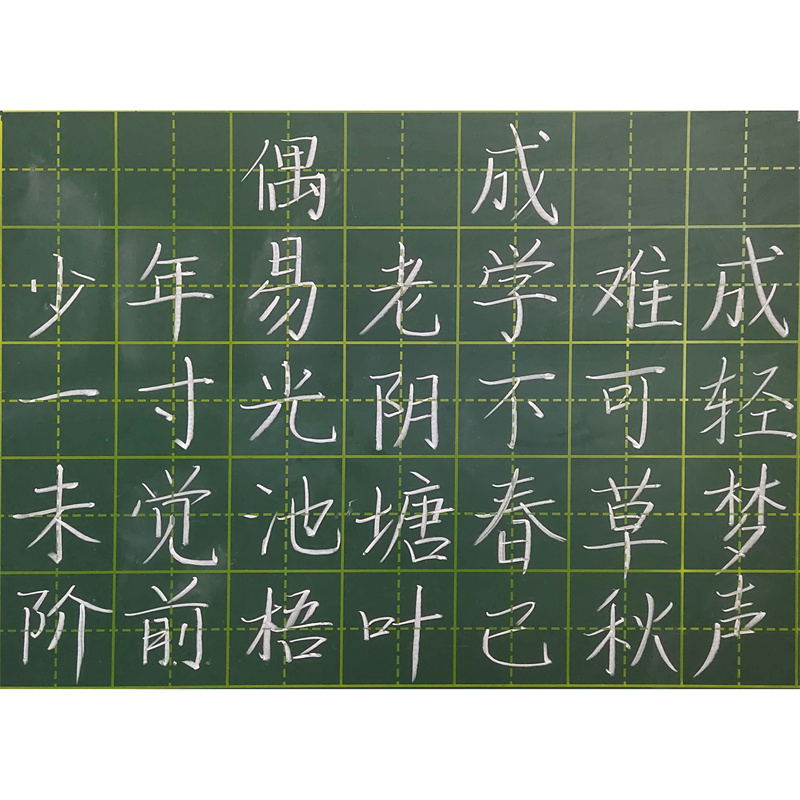 偶成
少年易老学难成
一寸光阴不可轻
未觉池塘春草梦
阶前梧叶已秋声